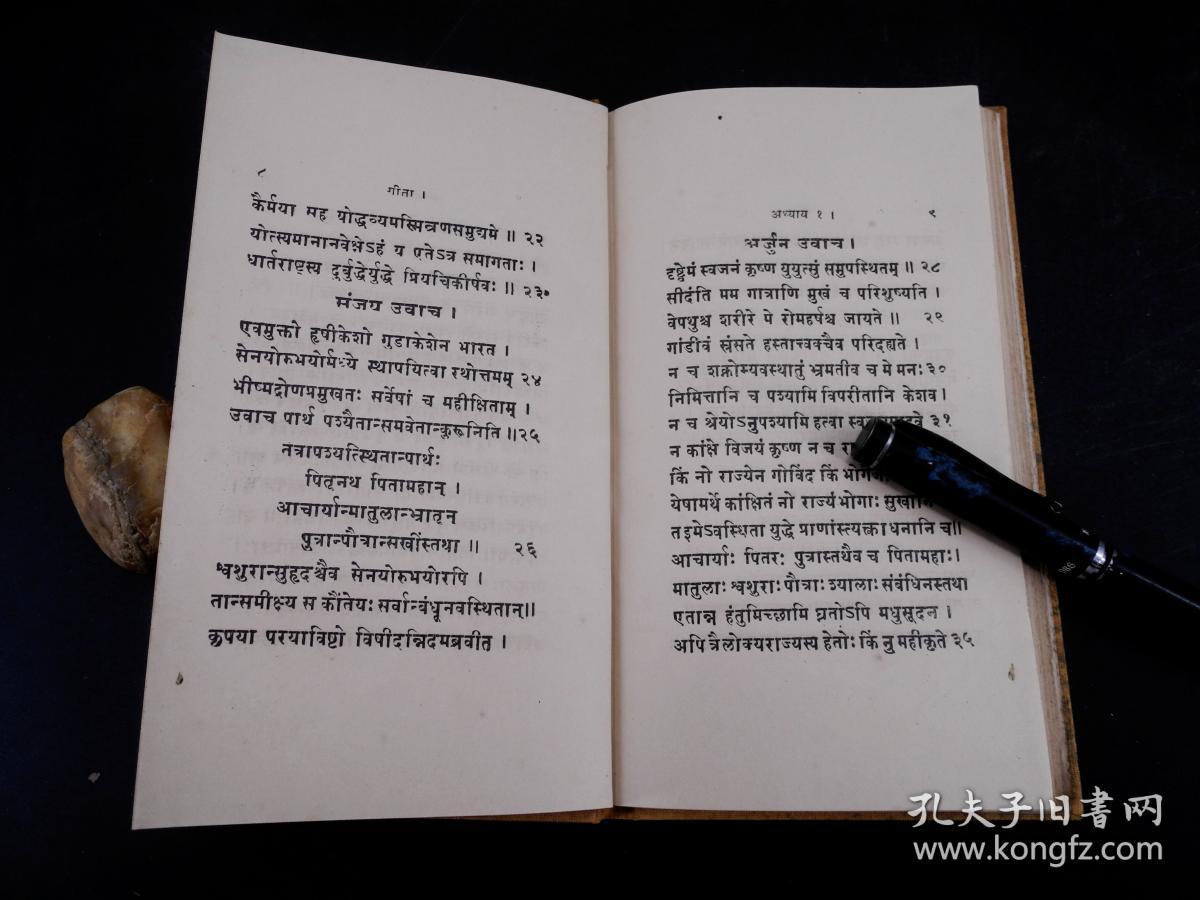 ८
गीता ।
कैर्मया मह योद्धव्यमस्मिन्रणसमुद्यमे ॥ २२
योत्स्यमानानवेक्षेऽहं य एतेऽत्र समागताः ।
धार्तराष्ट्रस्य दुर्बुद्धेर्युद्धे प्रियचिकीर्षवः ॥ २३
संजय उवाच ।
एवमुक्तो हृषीकेशो गुडाकेशेन भारत ।
सेनयोरुभयोर्मध्ये स्थापयित्वा रथोत्तमम् २४
भीष्मद्रोणप्रमुखतः सर्वेषां च महीक्षिताम् ।
उवाच पार्थ पश्यैतान्समवेतान्कुरूनिति ॥२५
तत्रापश्यत्स्थितान्पार्थः
पितॄनथ पितामहान् ।
आचार्यान्मातुलान्भ्रातॄन
पुत्रान्पौत्रान्सखींस्तथा ॥ २६
श्वशुरान्सुहृदश्चैव सेनयोरुभयोरपि ।
तान्समीक्ष्य स कौंतेयः सर्वान्बंधूनवस्थितान्॥
कृपया परयाविष्टो विषीदन्निदमब्रवीत ।
अध्याय १ ।
९
अर्जुन उवाच ।
दृष्ट्वेमं स्वजनं कृष्ण युयुत्सुं समुपस्थितम् ॥ २८
सीदंति मम गात्राणि मुखं च परिशुष्यति ।
वेपथुश्च शरीरे मे रोमहर्षश्च जायते ॥ २९
गांडीवं स्रंसते हस्तात्त्वक्चैव परिदह्यते ।
न च शक्नोम्यवस्थातुं भ्रमतीव च मे मनः ३०
निमित्तानि च पश्यामि विपरीतानि केशव ।
न च श्रेयोऽनुपश्यामि हत्वा ३१
न कांक्षे विजयं कृष्ण न च
किं नो राज्येन गोविंद किं
येषामर्थे कांक्षितं नो राज्यं भोगाः सुखानि
तइमेऽवस्थिता युद्धे प्राणांस्त्यक्त्वाधनानि च॥
आचार्याः पितरः पुत्रास्तथैव च पितामहाः।
मातुलाः श्वशुराः पौत्राः श्यालाः संबंधिनस्तथा
एतान्न हंतुमिच्छामि घ्नतोऽपि मधुसूदन ।
अपि त्रैलोक्यराज्यस्य हेतोः किं नु महीकृते ३५
孔夫子旧书网
www.kongfz.com